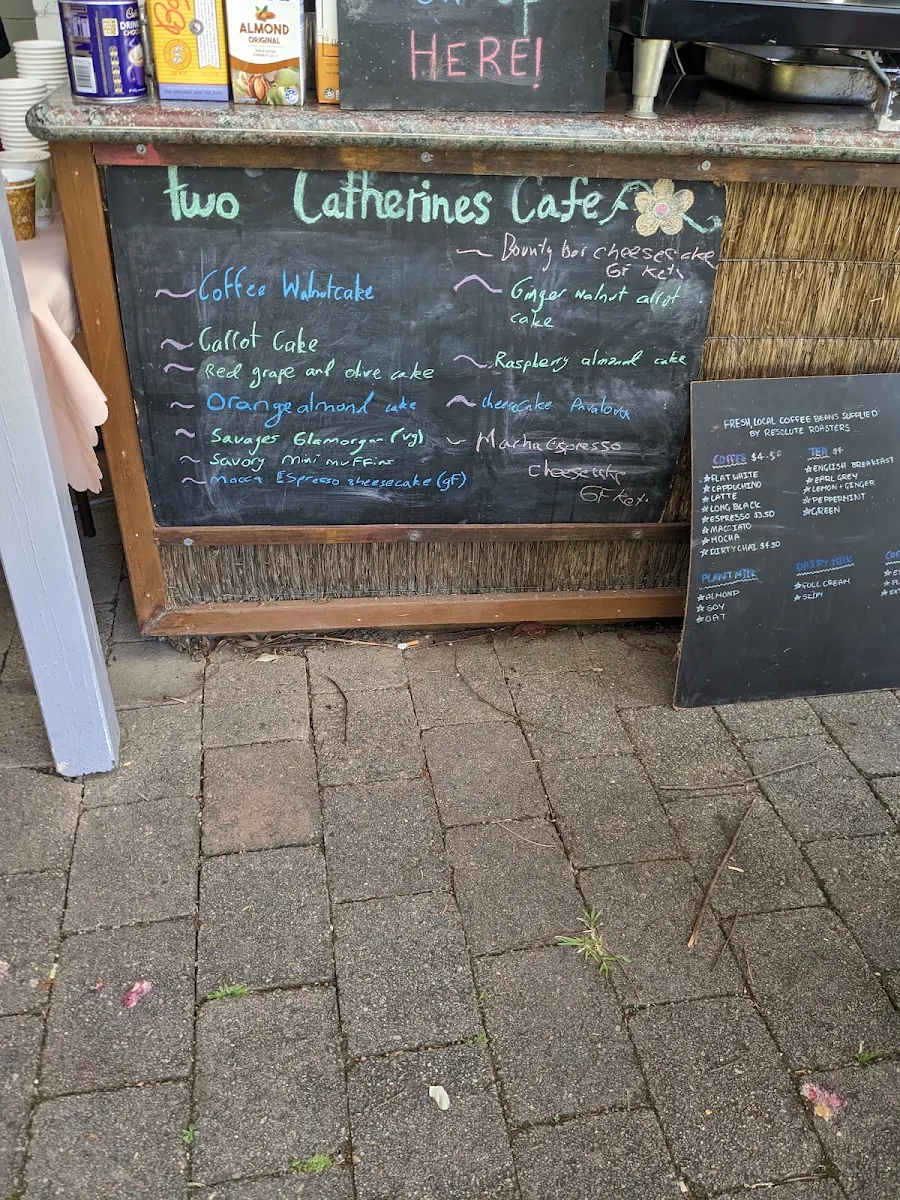 DRINK
ALMOND
ORIGINAL
HERE!
Two Catherines Cafe
~ Coffee Walnutcake
~ Carrot Cake
~ Red grape and olive cake
~ Orange almond cake
~ Savages Glamorgan (vg)
~ Savory mini muffins
~ Mocca Espresso cheesecake (gf)
~ Bounty bar cheesecake
GF Keto
~ Ginger walnut carrot
cake
~ Raspberry almond cake
~ cheesecake Pavalova
~ Macha Espresso
Cheesecake
GF Keto
FRESH LOCAL COFFEE BEANS SUPPLIED
BY RESOLUTE ROASTERS
COFFEE $4.50
☆FLAT WHITE
☆CAPPUCHINO
☆LATTE
☆LONG BLACK
☆ESPRESSO $3.50
☆MACCIATO
☆MOCHA
☆DIRTY CHAI $4.50
TEA $4
☆ENGLISH BREAKFAST
☆EARL GREY
☆LEMON + GINGER
☆PEPPERMINT
☆GREEN
PLANT MILK
☆ALMOND
☆SOY
☆OAT
DAIRY MILK
☆FULL CREAM
☆SLIM